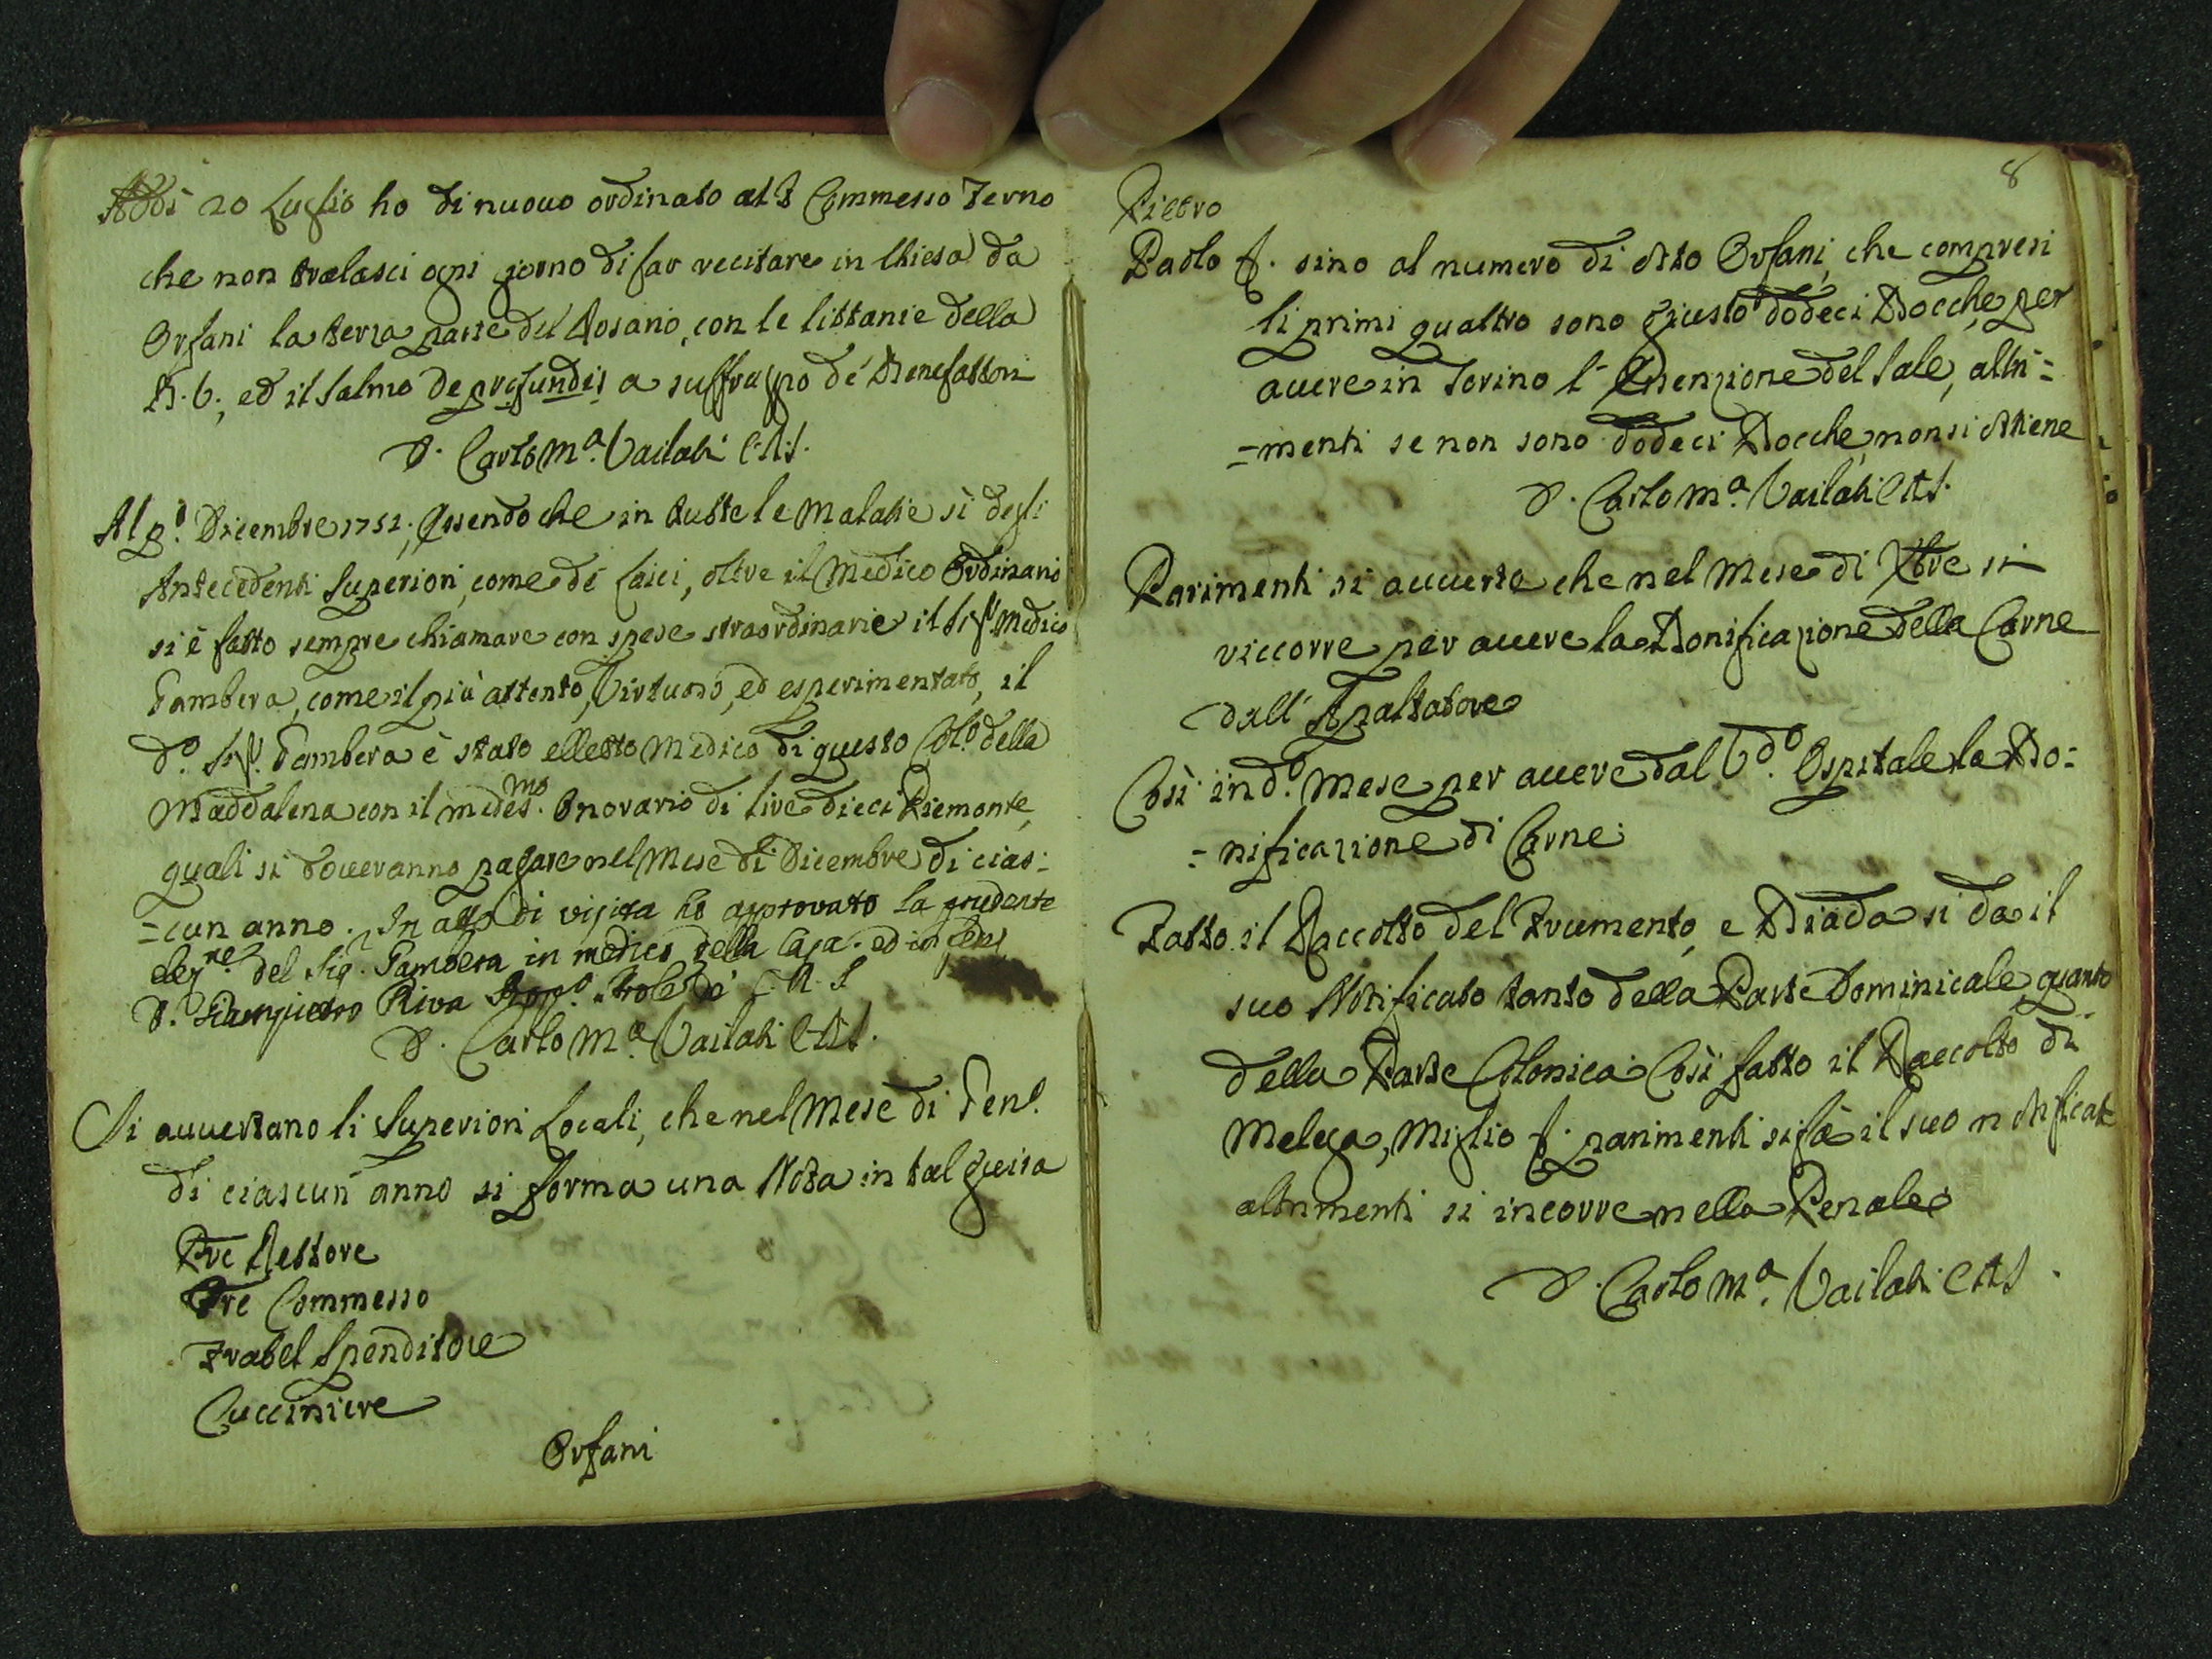 Addì 20 Luglio ho di nuovo ordinato al P. Commesso Ferno
che non tralasci ogni giorno di far recitare in Chiesa da
Orfani la terza parte del Rosario, con le littanie della
B. V., ed il Salmo De profundis a suffraggio de' Benefattori
D. Carlo Mª. Vailati C.R.S.
Al pº. Dicembre 1751. Essendo che in tutte le malatie sì degli
Antecedenti Superiori, come de' Laici, oltre il Medico Ordinario
si è fatto sempre chiamare con spese straordinarie il Sigr. Medico
Gambera, come il più attento, Virtuoso, ed esperimentato, il
dº. Sigr. Gambera è stato elletto Medico di questo Colº. della
Maddalena con il medesmo. Onorario di lire dieci Piemonte,
quali si doveranno pagare nel Mese di Dicembre di cias=
=cun anno. In atto di visita ho approvato la prudente
elezne. del Sig. Gambera in medico della Casa. ed in fede
D. Giampietro Riva C.R.S
D. Carlo Mª. Vailati C.R.S.
Si avvertano li Superiori Locali, che nel Mese di Genº.
di ciascun anno si forma una Nota in tal guisa
Pre Rettore
Pre Commesso
Fratel Spenditore
Cucciniere
Orfani
8
Pietro
Paolo &. sino al numero di otto Orfani, che compresi
li primi quattro sono giusto dodeci Bocche, per
avere in Torino l' Esenzione del Sale, altri=
=menti se non sono dodeci Bocche, non si ottiene
D. Carlo Mª. Vailati C.R.S.
Parimenti si avverta che nel Mese di Xbre si
riccorre per avere la Bonificazione della Carne
dall' Apaltatore
Così in dº. Mese per avere dal Vdº. Ospitale la Bo=
=nificazione di Carne
Fatto il Raccolto del Frumento, e Biada si da il
suo Notificato tanto della Parte Dominicale, quanto
della Parte Colonica. Così fatto il Raccolto di
Melega, Miglio &. parimenti si fà il suo notificato
altrimenti si incorre nella Penale
D. Carlo Mª. Vailati C.R.S.